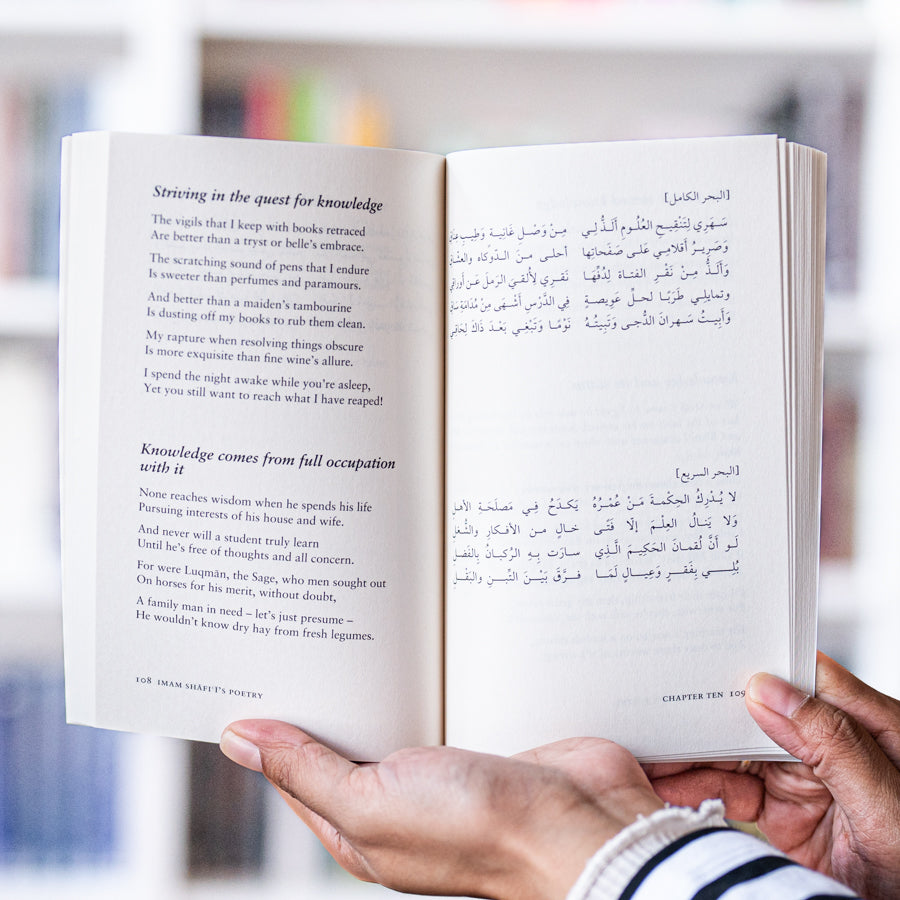 Striving in the quest for knowledge
The vigils that I keep with books retraced
Are better than a tryst or belle's embrace.
The scratching sound of pens that I endure
Is sweeter than perfumes and paramours.
And better than a maiden's tambourine
Is dusting off my books to rub them clean.
My rapture when resolving things obscure
Is more exquisite than fine wine's allure.
I spend the night awake while you're asleep,
Yet you still want to reach what I have reaped!
Knowledge comes from full occupation
with it
None reaches wisdom when he spends his life
Pursuing interests of his house and wife.
And never will a student truly learn
Until he's free of thoughts and all concern.
For were Luqmān, the Sage, who men sought out
On horses for his merit, without doubt,
A family man in need – let's just presume –
He wouldn't know dry hay from fresh legumes.
108 IMAM SHĀFIʿĪ'S POETRY
[البحر الكامل]
سَهَرِي لِتَنْقِيحِ العُلُومِ أَلَذُّ لِي مِنْ وَصْلِ غَانِيَة وَطِيبِ
وَصَرِيرُ أقلامِي عَلى صَفَحَاتِها أحلى منَ الدَّوكاء والعشَّاقِ
وَأَلَذُّ مِنْ نَقْرِ الفتاة لِدُفِّهَا نَقرِي لأُلقيَ الرملَ عَن أوراقِي
وتمايلي طَرَبًا لحلِّ عَويصةٍ فِي الدَّرْسِ أَشْهَى مِنْ مُدَامَةِ
وَأَبِيتُ سَهرانَ الدُّجى وَتَبِيتُهُ نَوْمًا وَتَبْغِي بَعْدَ ذَاكَ لِحَاقِي
[البحر السريع]
لا يُدْرِكُ الحِكْمةَ مَنْ عُمْرُهُ يَكدَحُ فِي مَصْلَحَةِ الأهلِ
وَلا يَنالُ العِلْمَ إلّا فَتًى خالٍ من الأفكارِ والشُّغلِ
لَو أنَّ لُقمانَ الحَكِيمَ الَّذِي سارَت بِهِ الرُكبانُ بِالفَضلِ
بُلِي بِفَقرٍ وَعِيالٍ لَمَا فرَّقَ بَيْنَ التِّبنِ والبَقلِ
CHAPTER TEN 109